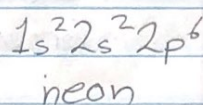 1s²2s²2p⁶
neon